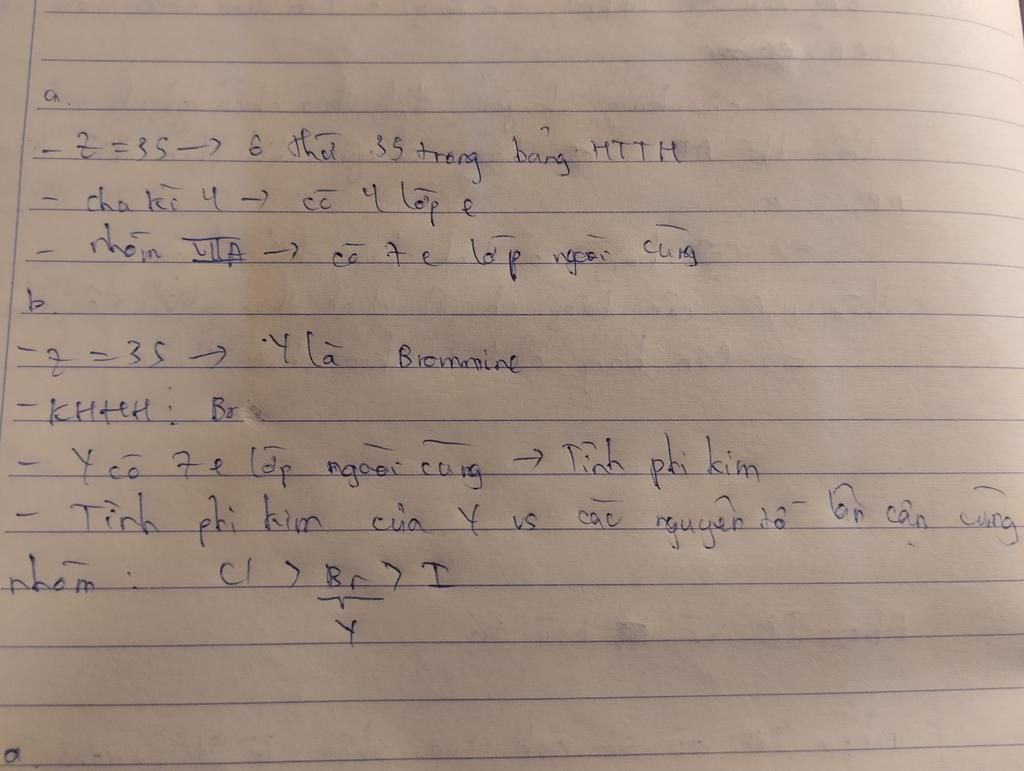 a.
- Z = 35 → ô thứ 35 trong bảng HTTH
- chu kì 4 → có 4 lớp e
- nhóm VIIA → có 7 e lớp ngoài cùng
b.
- Z = 35 → Y là Brommine
- KHHH: Br
- Y có 7 e lớp ngoài cùng → Tính phi kim
- Tính phi kim của Y vs các nguyên tố lân cận cùng
nhóm: Cl > Br > I
Y
a